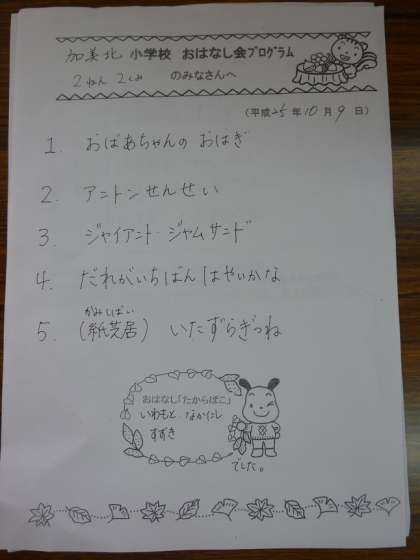 加美北 小学校 おはなし会プログラム
2ねん 2くみ のみなさんへ
(平成25年10月9日)
1. おばあちゃんの おはぎ
2. アントンせんせい
3. ジャイアント・ジャムサンド
4. だれがいちばん はやいかな
かみしばい
5. (紙芝居) いたずらぎつね
おはなし「たからばこ」
いわもと なかにし
すずき
でした。